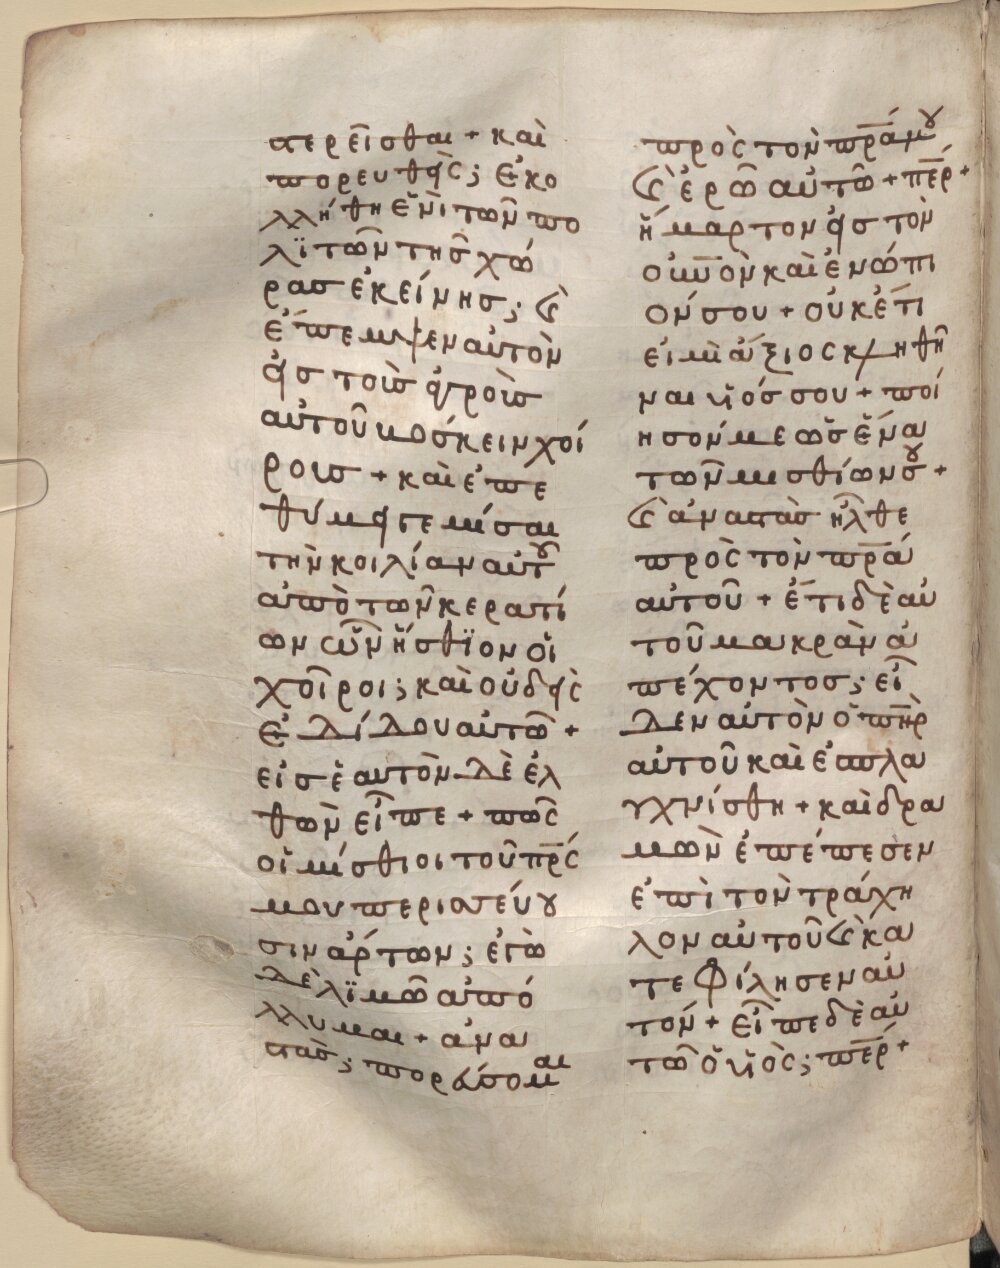 στερεῖσθαι + καὶ
πορευθεὶς; ἐκο
λλήθη ἑνὶ τῶν πο
λϊτῶν τησ χώ
ρασ ἐκείνησ; κ(αὶ)
ἔπεμψεν αὐτὸν
εἰσ τοὺσ ἀγροὺσ
αὐτοῦ βόσκειν χοί
ρουσ + καὶ ἐπε
θύμει γεμίσαι
τὴν κοιλίαν αὐτȣ
ἀπὸ τῶν κερατί
ων ὧν ἤσθϊον οἱ
χοῖροι; καὶ οὐδεὶς
ἐδίδου αὐτῶ +
εἰσ ἑαυτὸν δὲ ἐλ
θὼν εἶπε + πῶς
οἱ μίσθιοι τοῦ πρ̅ς
μου περισσεύȣ
σιν ἄρτων; ἐγὼ
δὲ λϊμῶ ἀπό
λλυμαι + ἀνα
στὰσ; πορεύσομαι
πρὸς τὸν πρ̅α μȣ
κ(αὶ) ἐρῶ αὐτῶ + πε̅ρ +
ἥμαρτον εἰσ τὸν
οὐν̅ον καὶ ἐνώπι
όν σου + οὐκέτι
εἰμὶ ἄξιος κληθῆ
ναι υἱόσ σου + ποί
ησόν με ὡσ ἕνα
τῶν μισθίων σȣ +
κ(αὶ) ἀναστὰσ ἦλθε
πρὸς τὸν πρ̅α
αὐτοῦ + ἔτι δὲ αὐ
τοῦ μακρὰν ἀ
πέχοντοσ; εἶ
δεν αὐτὸν ὁ πη̅ρ
αὐτοῦ καὶ ἐσπλα
γχνίσθη + καὶ δρα
μὼν ἐπέπεσεν
ἐπὶ τὸν τράχη
λον αὐτοῦ κ(αὶ) κα
τεφίλησεν αὐ
τόν + εἶπε δὲ αὐ
τῶ ὁ υἱὸς; πε̅ρ +